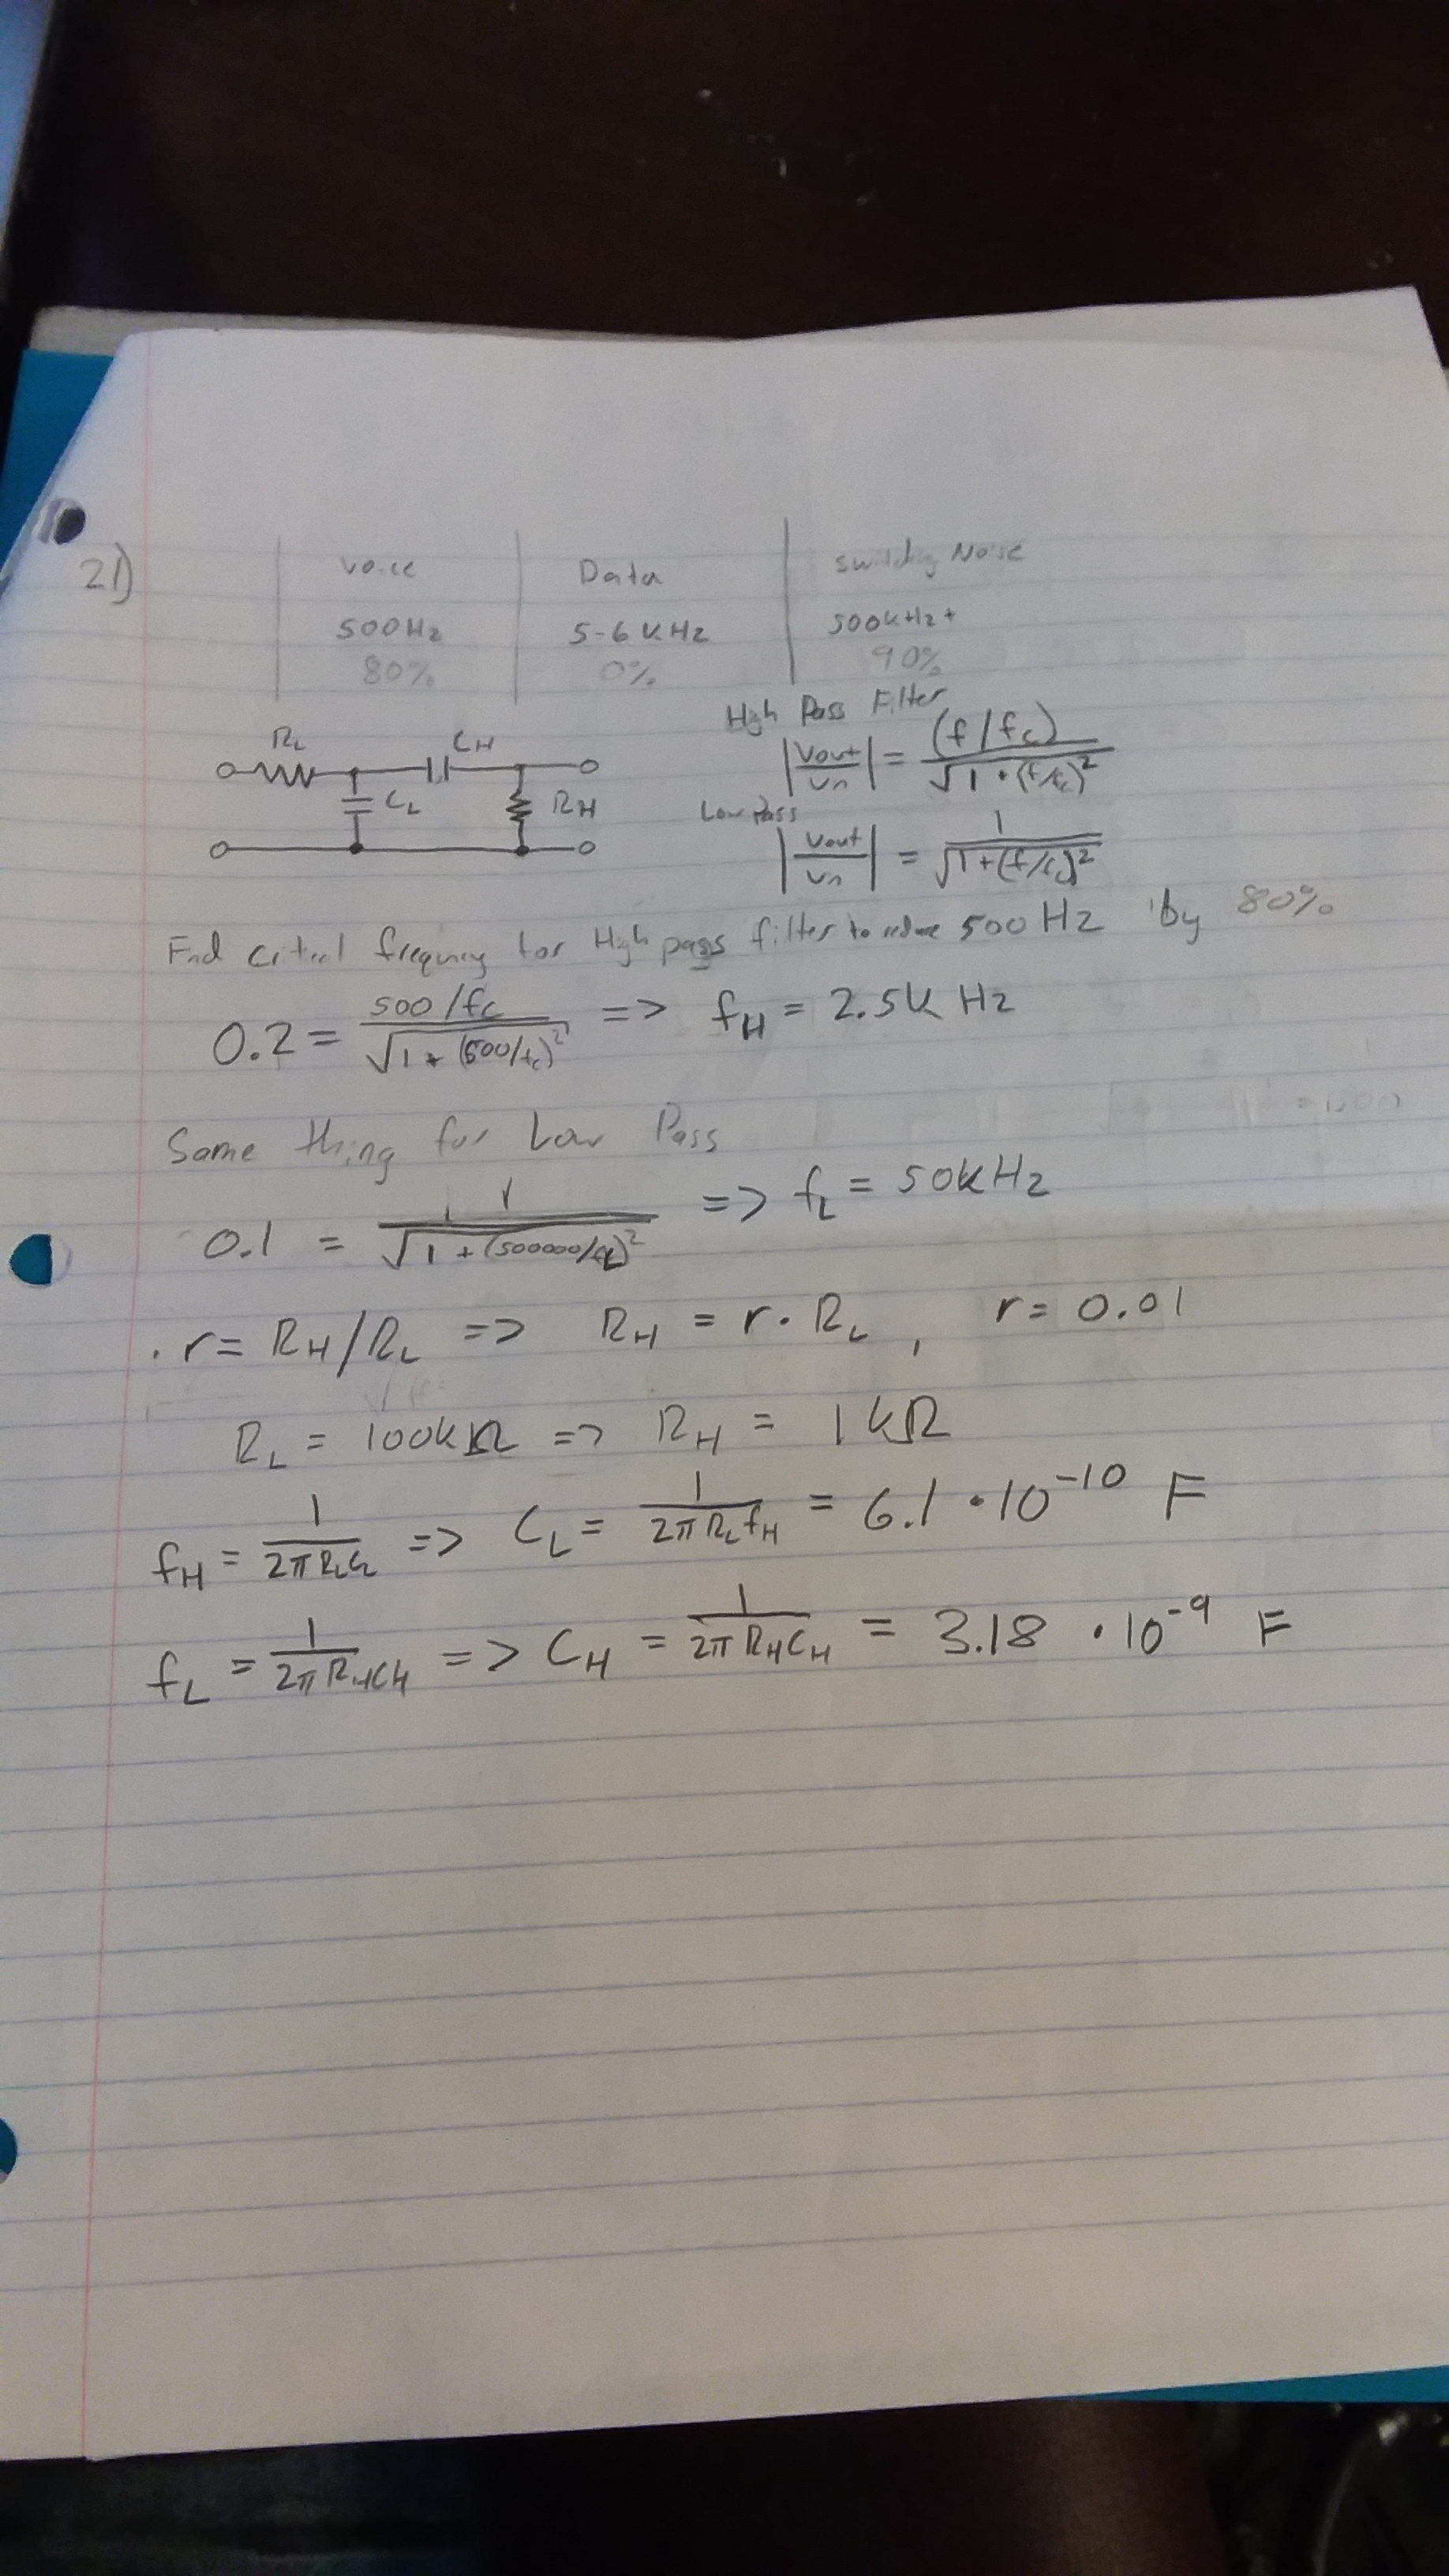 2)
voice Data switching Noise
500Hz 5-6kHz 500kHz+
80% 0% 90%
RL CH
CL RH
High Pass Filter
|Vout/Vin| = (f/fc)/√(1+(f/fc)²)
Low Pass
|Vout/Vin| = 1/√(1+(f/fc)²)
Find citical frequency for High pass filter to reduce 500Hz by 80%
0.2 = (500/fc)/√(1+(500/fc)²) => fH = 2.5k Hz
Same thing for Low Pass
0.1 = 1/√(1+(500000/fc)²) => fL = 50kHz
. r = RH/RL => RH = r·RL, r = 0.01
RL = 100kΩ => RH = 1kΩ
fH = 1/(2πRLCL) => CL = 1/(2πRLfH) = 6.1·10⁻¹⁰ F
fL = 1/(2πRHCH) => CH = 1/(2πRHCH) = 3.18·10⁻⁹ F